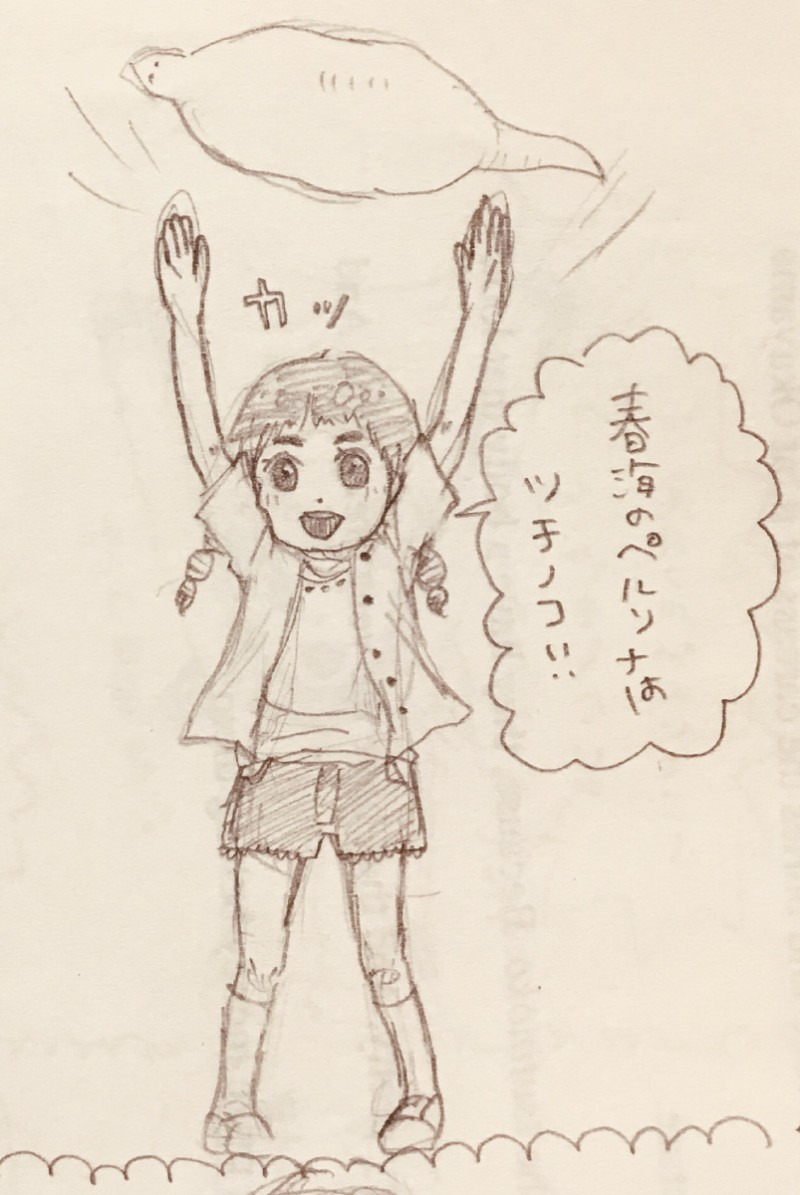 カッ
春海のペルソナは
ツチノコ!!